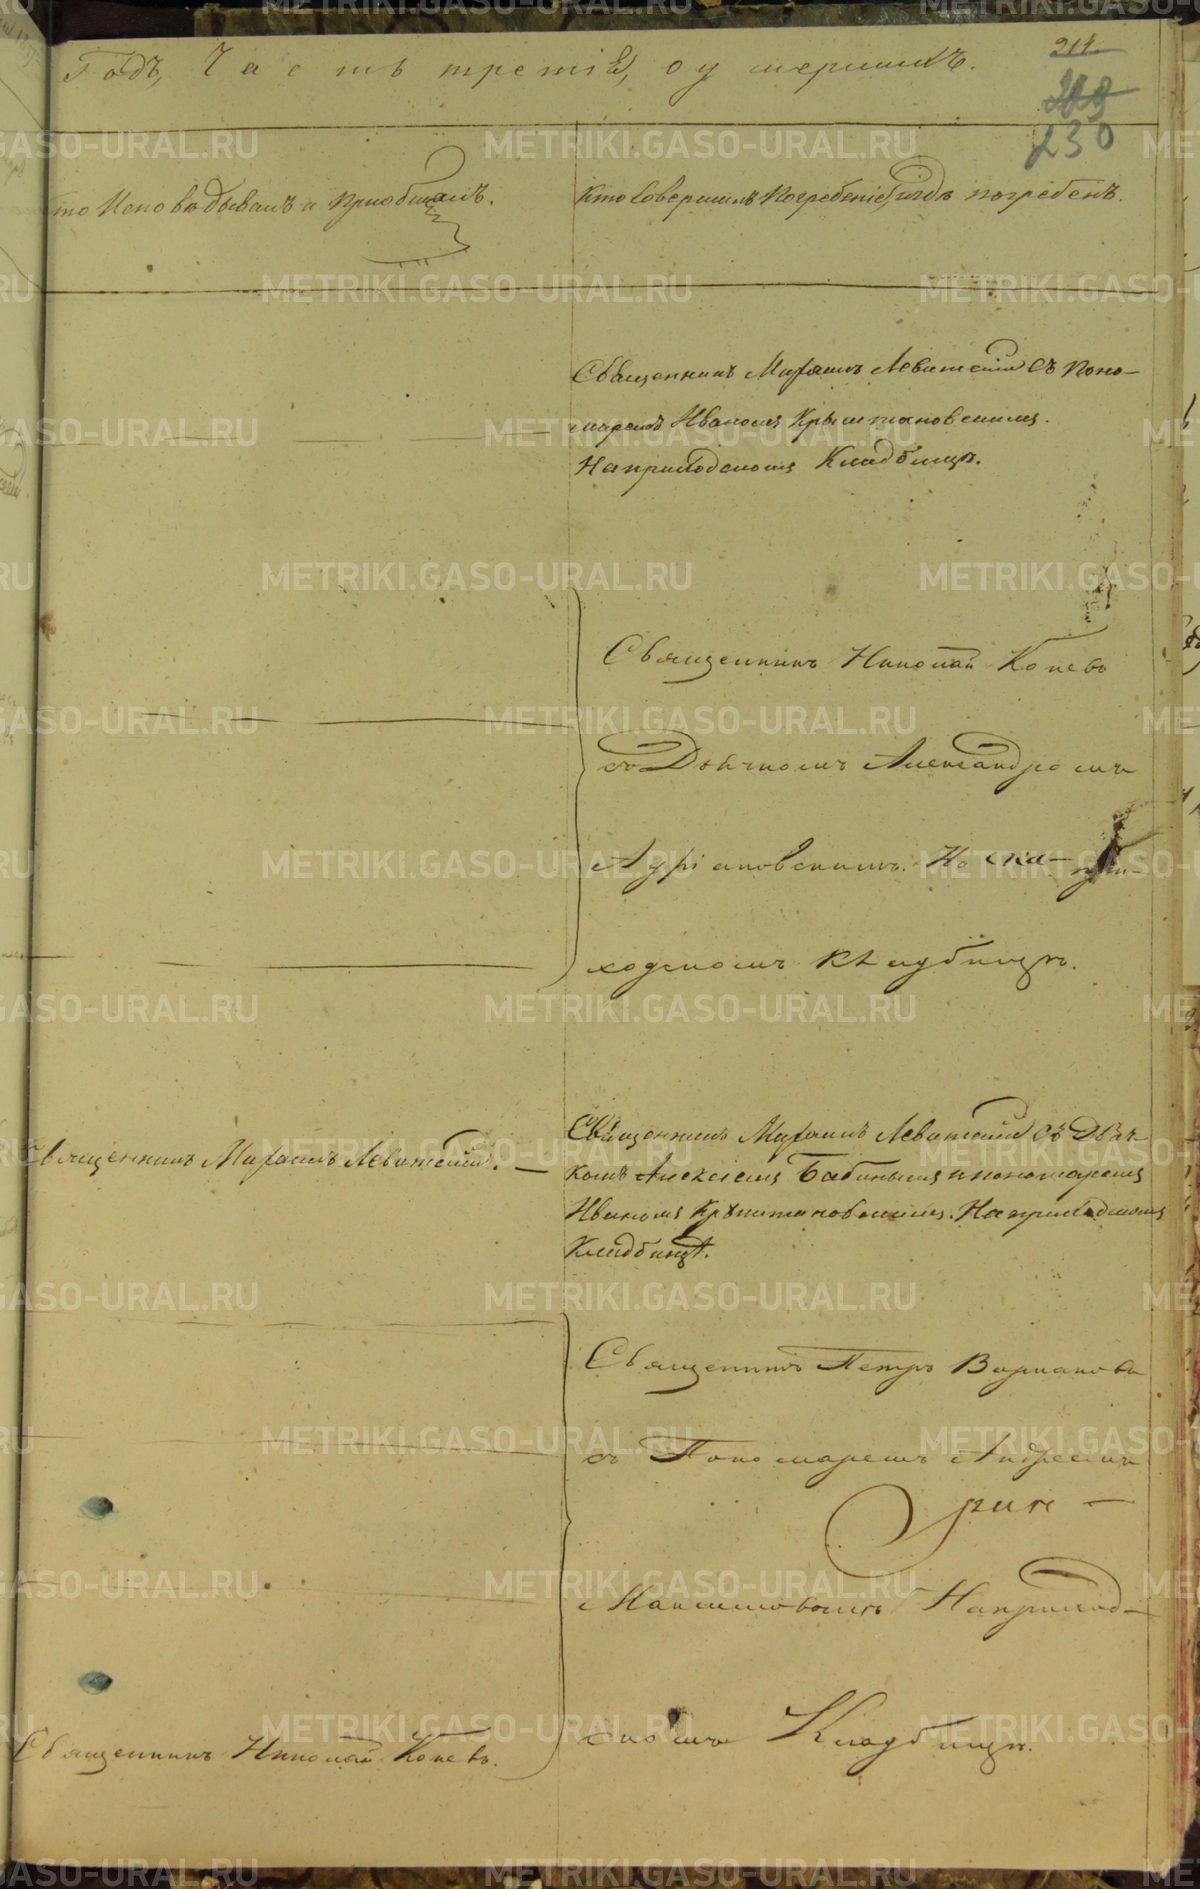 Годъ, Часть третія, о умершихъ.
214
230
кто Исповѣдывалъ и Приобщалъ.
Кто Совершилъ Погребеніе, и гдѣ погребенъ.
Священникъ Михаилъ Левитскій Съ Поно-
маремъ Иваномъ Крыштановскимъ.
На приходскомъ Кладбищѣ.
Священникъ Николай Коневъ
съ Дьячкомъ Александромъ
На
ходскомъ кладбищѣ.
Священникъ Михаилъ Левитскій. —
Священникъ Михаилъ Левитскій Съ Дьяч-
комъ Алексѣемъ Бабинымъ и пономаремъ
Иваномъ Крыштановскимъ. На приходскомъ
Кладбищѣ.
Священникъ Петръ
съ Пономаремъ Андреемъ
Максимовымъ На приход-
скомъ Кладбищѣ.
Священникъ Николай Коневъ.
METRIKI.GASO-URAL.RU